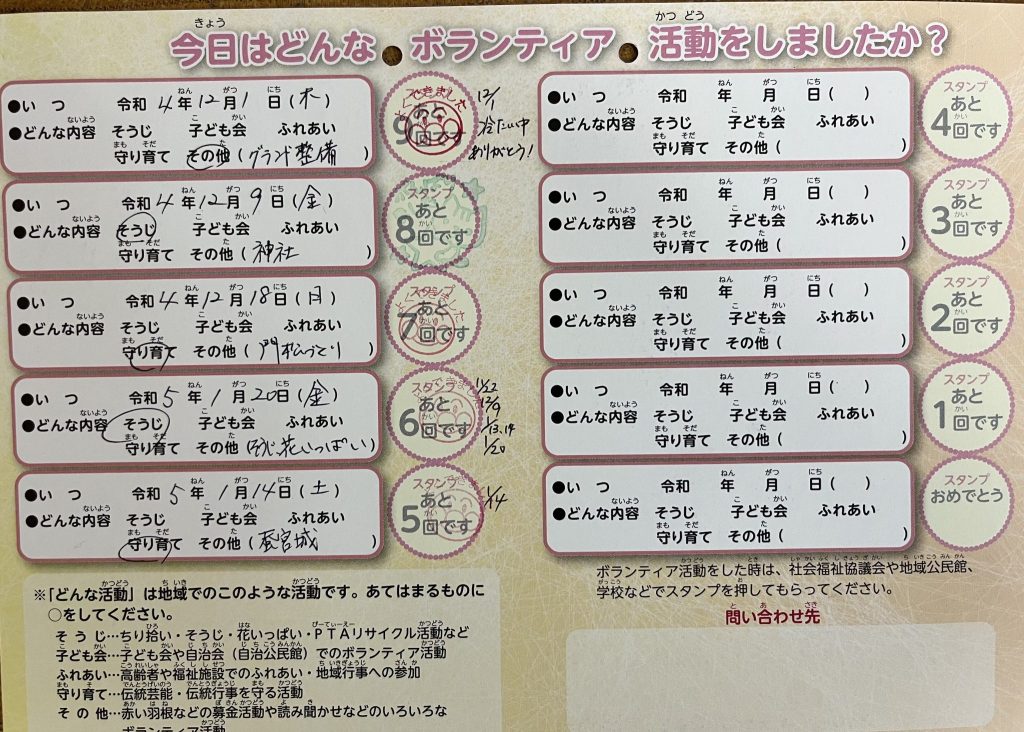 今日はどんなボランティア活動をしましたか？
●いつ 令和 4年 12月 1日 (木)
●どんな内容 そうじ 子ども会 ふれあい
守り育て その他 (グランド整備)
できました
あと
9回です
12/1
冷たい中
ありがとう！
●いつ 令和 4年 12月 9日 (金)
●どんな内容 そうじ 子ども会 ふれあい
守り育て その他 (神社)
スタンプ
あと
8回です
●いつ 令和 4年 12月 18日 (日)
●どんな内容 そうじ 子ども会 ふれあい
守り育て その他 (門松づくり)
スタンプ
あと
7回です
●いつ 令和 5年 1月 20日 (金)
●どんな内容 そうじ 子ども会 ふれあい
守り育て その他 (花いっぱい)
スタンプ
あと
6回です
12/9
1/20
●いつ 令和 5年 1月 14日 (土)
●どんな内容 そうじ 子ども会 ふれあい
守り育て その他 (宮城)
スタンプ
あと
5回です
1/14
●いつ 令和 年 月 日 ( )
●どんな内容 そうじ 子ども会 ふれあい
守り育て その他 ( )
スタンプ
あと
4回です
●いつ 令和 年 月 日 ( )
●どんな内容 そうじ 子ども会 ふれあい
守り育て その他 ( )
スタンプ
あと
3回です
●いつ 令和 年 月 日 ( )
●どんな内容 そうじ 子ども会 ふれあい
守り育て その他 ( )
スタンプ
あと
2回です
●いつ 令和 年 月 日 ( )
●どんな内容 そうじ 子ども会 ふれあい
守り育て その他 ( )
スタンプ
あと
1回です
●いつ 令和 年 月 日 ( )
●どんな内容 そうじ 子ども会 ふれあい
守り育て その他 ( )
スタンプ
おめでとう
※「どんな活動」は地域でのこのような活動です。あてはまるものに
○をしてください。
そうじ…ちり拾い・そうじ・花いっぱい・PTAリサイクル活動など
子ども会…子ども会や自治会（自治公民館）でのボランティア活動
ふれあい…高齢者や福祉施設でのふれあい・地域行事への参加
守り育て…伝統芸能・伝統行事を守る活動
その他…赤い羽根などの募金活動や読み聞かせなどのいろいろな
ボランティア活動
ボランティア活動をした時は、社会福祉協議会や地域公民館、
学校などでスタンプを押してもらってください。
問い合わせ先